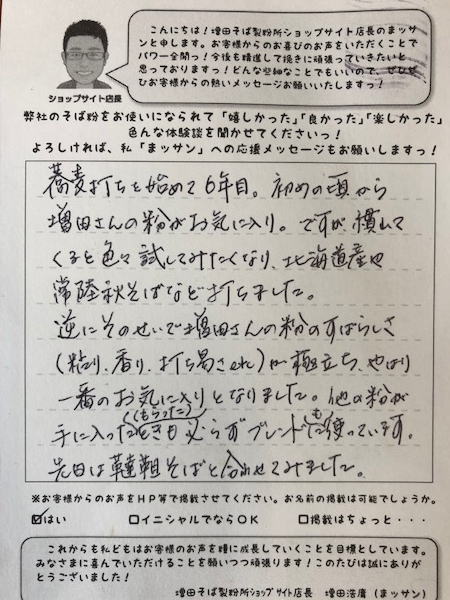 こんにちは！増田そば製粉所ショップサイト店長のマッサ
ンと申します。お客様からのお喜びのお声をいただくことで
パワー全開っ！今後も精進して挽きに頑張っていきたいと
思っておりますっ！どんな些細なことでもいいので、ぜひぜ
ひお客様からの熱いメッセージお願いいたしますっ！
ショップサイト店長
弊社のそば粉をお使いになられて「嬉しかった」「良かった」「楽しかった」
色んな体験談を聞かせてくださいっ！
よろしければ、私「まッサン」への応援メッセージもお願いしますっ！
蕎麦打ちを始めて6年目。初めの頃から
増田さんの粉がお気に入り。ですが、慣れて
くると色々試してみたくなり、北海道産や
常陸秋そばなど打ちました。
逆にそのせいで増田さんの粉のすばらしさ
(粘り、香り、打ち易さetc)が極立ち、やはり
一番のお気に入りとなりました。他の粉が
手に入った(もらった)ときも必らずブレンドにも使っています。
先日は韃靼そばと合わせてみました。
※お客様からのお声をHP等で掲載させてください。お名前の掲載は可能でしょうか。
☑はい □イニシャルでならOK □掲載はちょっと・・・
これからも私どもはお客様のお声を糧に成長していくことを目標としています。
みなさまに喜んでいただけることを願いつつ頑張ります！このたびは誠にありが
とうございました！
増田そば製粉所ショップサイト店長 増田浩庸(まッサン)